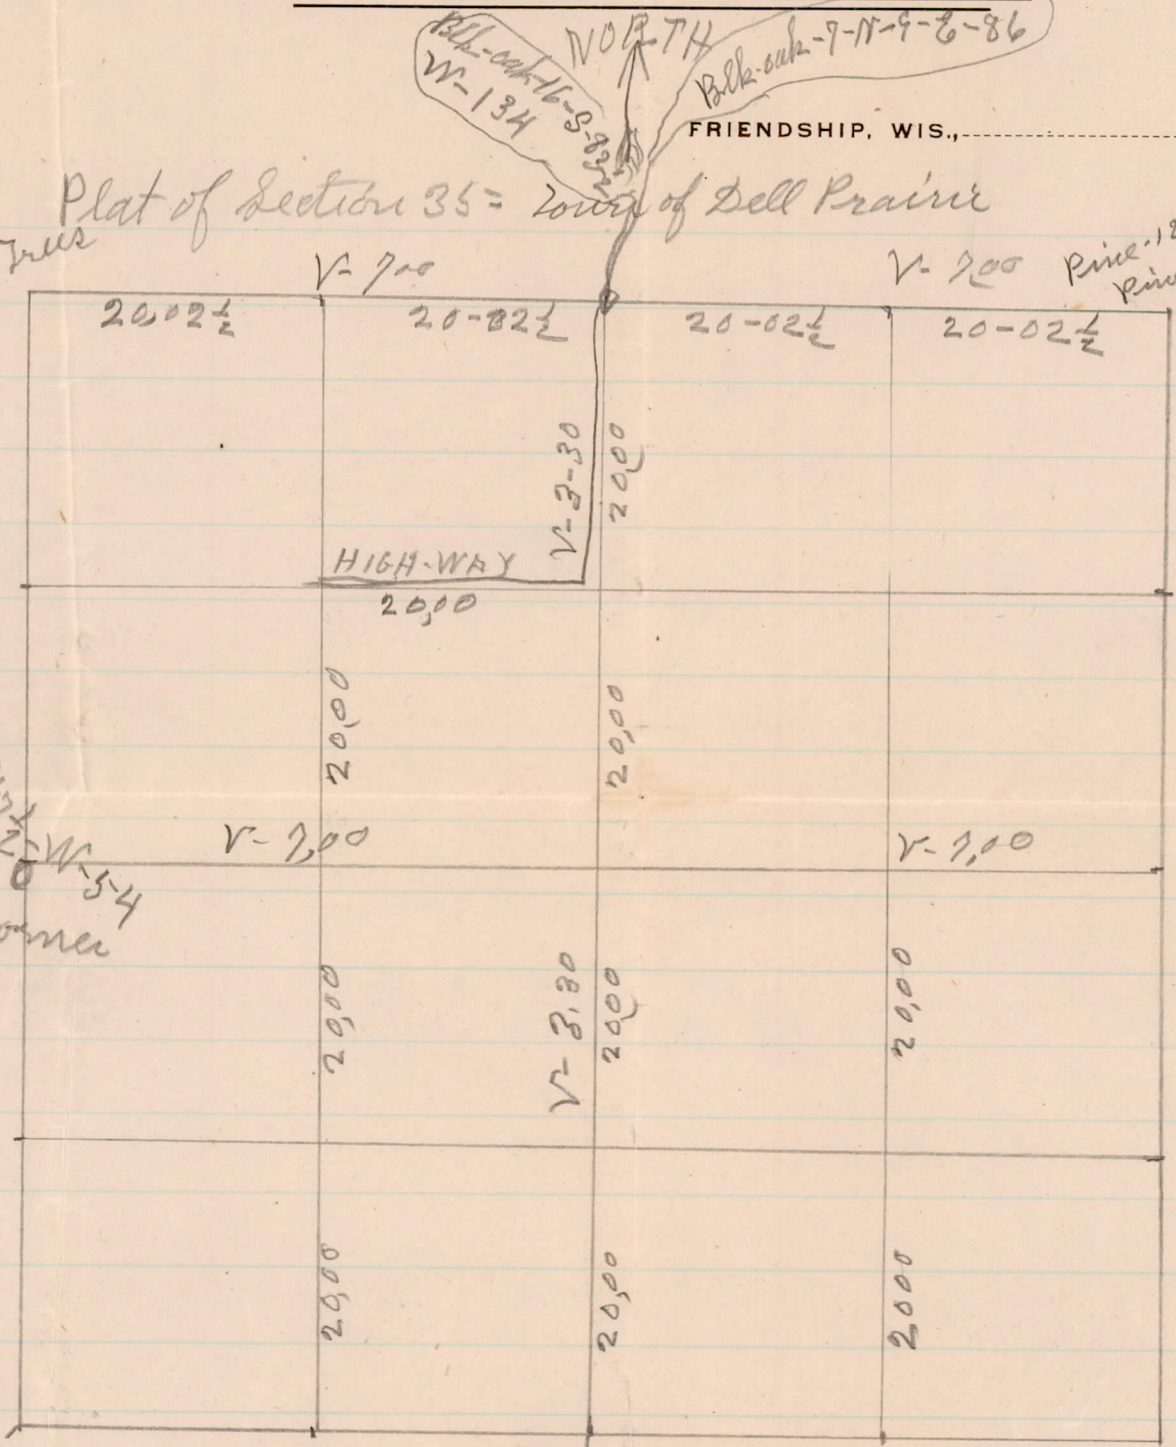 NORTH
Blk-oak-16-S-82½
W-134
Blk-oak-7-N-9-E-86
FRIENDSHIP, WIS.,
Plat of Section 35= Town of Dell Prairie
Trees
V- 7,00
V- 7,00
Pine-12
Pine
20,02½
20-02½
20-02½
20-02½
V-3-30
20,00
HIGH-WAY
20,00
20,00
20,00
V- 7,00
V-7,00
W-54
orner
20,00
V- 3,30
20,00
20,00
20,00
20,00
2000